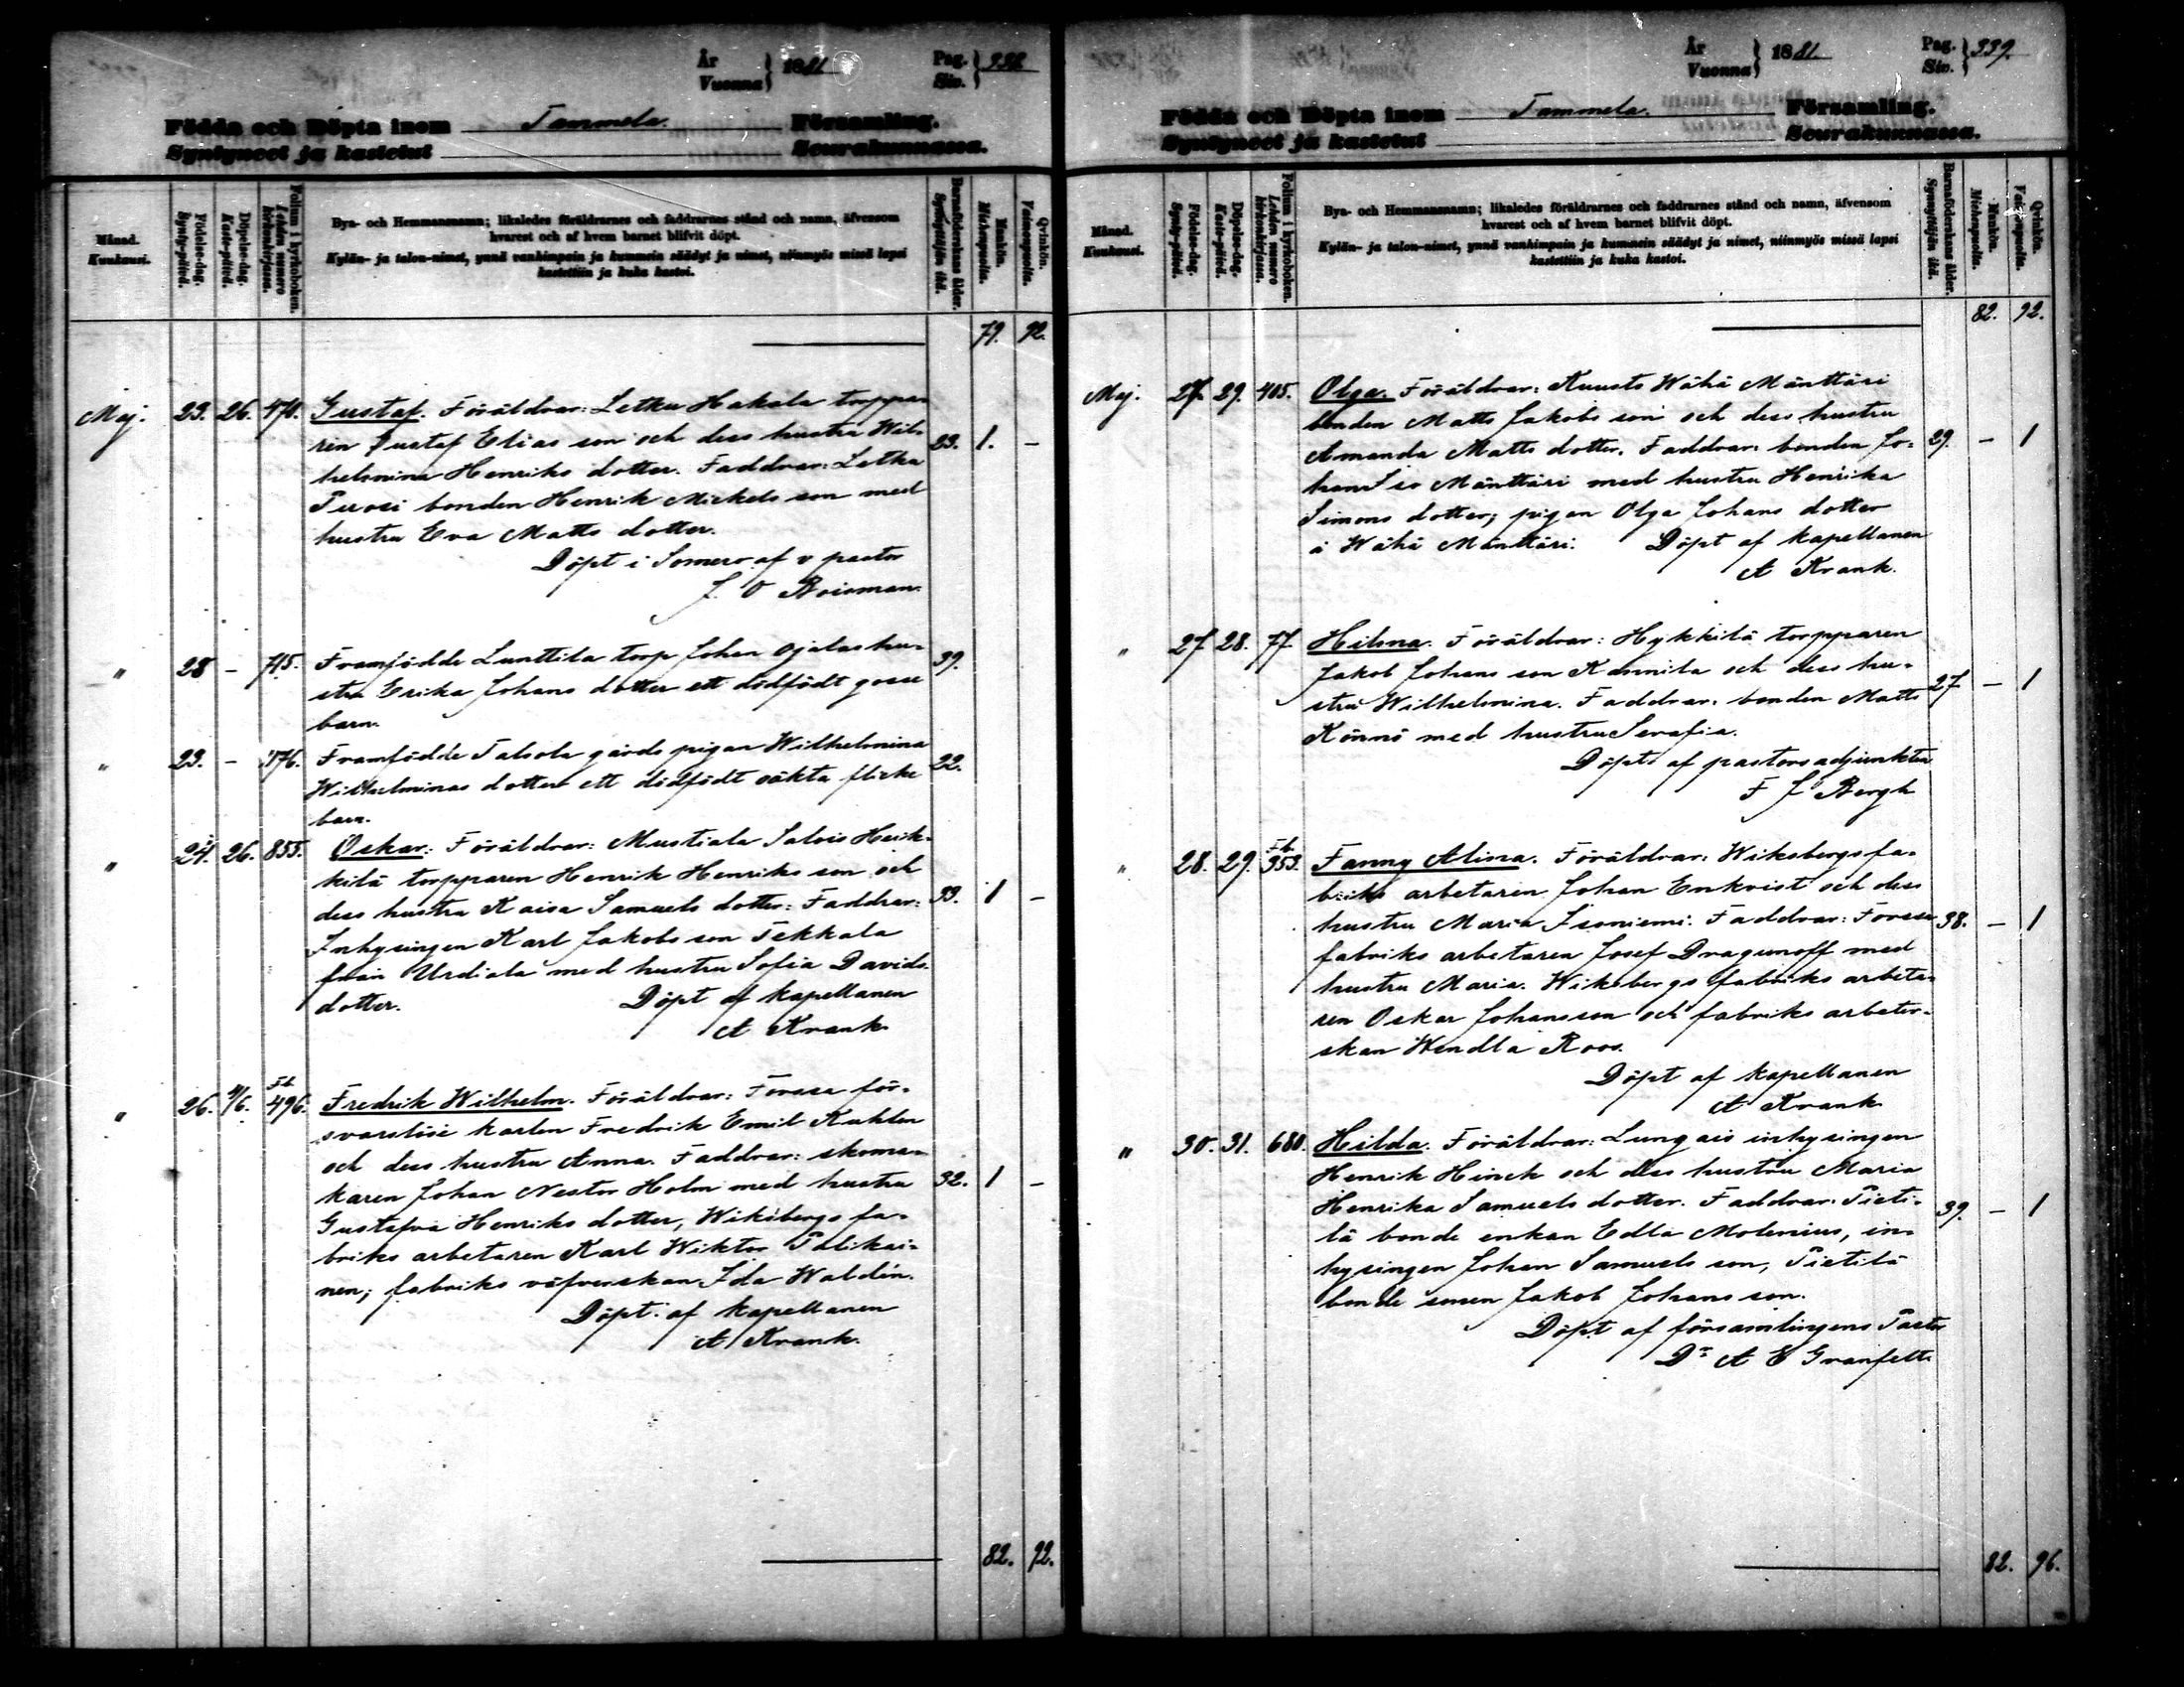 År
Vuonna } 1881
Pag.
Siv. } 338
Födda och Döpta inom Tammela. Församling.
Syntyneet ja kastetut Seurakunnassa.
Månad.
Kuukausi.
Födelse-dag.
Synty-päivä.
Döpelse-dag.
Kaste-päivä.
Folium i kyrkoboken.
Lehden numero
kirkonkirjassa.
Bya- och Hemmansnamn; likaledes föräldrarnes och faddrarnes stånd och namn, äfvensom
hvarest och af hvem barnet blifvit döpt.
Kylän- ja talon-nimet, ynnä vanhimpain ja kummein säädyt ja nimet, niinmyös missä lapsi
kastettiin ja kuka kastoi.
Barnaföderskans ålder.
Synnyttäjän ikä.
Mankön.
Miehenpuolta.
Qvinkön.
Vaimonpuolta.
79. 92.
Maj. 23. 26. 470. Gustaf. Föräldrar: Letku Hakala torppa-
ren Gustaf Elias son och dess hustru Wil- 23. 1. –
helmina Henriks dotter. Faddrar: Letku
Purosi bonden Henrik Mickels son med
hustru Eva Matts dotter.
Döpt i Somero af v pastor
J. O Roisman.
" 28 – 715. Framfödde Lunttila torp Johan Ojalas hu- 39.
stru Erika Johans dotter ett dödfödt gosse
barn.
" 23. – 776. Framfödde Talsola gårds pigan Wilhelmina 22.
Wilhelminas dotter ett dödfödt oäkta flicke
barn.
" 24. 26. 855. Oskar: Föräldrar: Mustiala Salois Heik-
kilä torpparen Henrik Henriks son och
dess hustru Kaisa Samuels dotter: Faddrar: 33. 1 –
Inhysingen Karl Jakobs son Tekkala
från Urdiala med hustru Sofia Davids
dotter. Döpt af kapellanen
A Krank.
" 26. 4/6. Fb. 496. Fredrik Wilhelm. Föräldrar: Forssa för-
svarslöse karlen Fredrik Emil Kahlen
och dess hustru Anna. Faddrar: skoma-
karen Johan Nestor Holm med hustru 32. 1 –
Gustafva Henriks dotter, Wiksbergs fa-
briks arbetaren Karl Wiktor Palikai-
nen; fabriks väfverskan Ida Waldén.
Döpt af kapellanen
A Krank.
82. 92.
År
Vuonna } 1881.
Pag.
Siv. } 339.
Födda och Döpta inom Tammela. Församling.
Syntyneet ja kastetut Seurakunnassa.
Månad.
Kuukausi.
Födelse-dag.
Synty-päivä.
Döpelse-dag.
Kaste-päivä.
Folium i kyrkoboken.
Lehden numero
kirkonkirjassa.
Bya- och Hemmansnamn; likaledes föräldrarnes och faddrarnes stånd och namn, äfvensom
hvarest och af hvem barnet blifvit döpt.
Kylän- ja talon-nimet, ynnä vanhimpain ja kummein säädyt ja nimet, niinmyös missä lapsi
kastettiin ja kuka kastoi.
Barnaföderskans ålder.
Synnyttäjän ikä.
Mankön.
Miehenpuolta.
Qvinkön.
Vaimonpuolta.
82. 92.
Maj. 27. 29. 405. Olga. Föräldrar: Kuusto Wähä Mänttäri
bonden Matts Jakobs son och dess hustru
Amanda Matts dotter. Faddrar: bonden Jo- 29. – 1
han Iso Mänttäri med hustru Henrika
Simons dotter; pigan Olga Johans dotter
å Wähä Mänttäri. Döpt af kapellanen
A Krank.
" 27 28. 77 Hilma. Föräldrar: Hykkilä torpparen
Jakob Johans son Kannila och dess hu-
stru Wilhelmina. Faddrar: bonden Matts 27 – 1
Könnö med hustru Serafia.
Döpt af pastorsadjunkten
F J Bergh
" 28. 29. Fb. 353. Fanny Alina. Föräldrar: Wiksbergs fa-
briks arbetaren Johan Enkvist och dess
hustru Maria Isoniemi. Faddrar: Forssa 38. – 1
fabriks arbetaren Josef Dragunoff med
hustru Maria. Wiksbergs fabriks arbeta-
ren Oskar Johansson och fabriks arbeter-
skan Wendla Roos.
Döpt af kapellanen
A Krank
" 30. 31. 680. Hilda. Föräldrar: Lungais inhysingen
Henrik Hinck och dess hustru Maria
Henrika Samuels dotter. Faddrar: Pieti- 39. – 1
lä bonde enkan Edla Molenius, in-
hysingen Johan Samuels son, Pietilä
bonde sonen Jakob Johans son.
Döpt af församlingens Pastor
Dr A E Granfelt
82. 96.